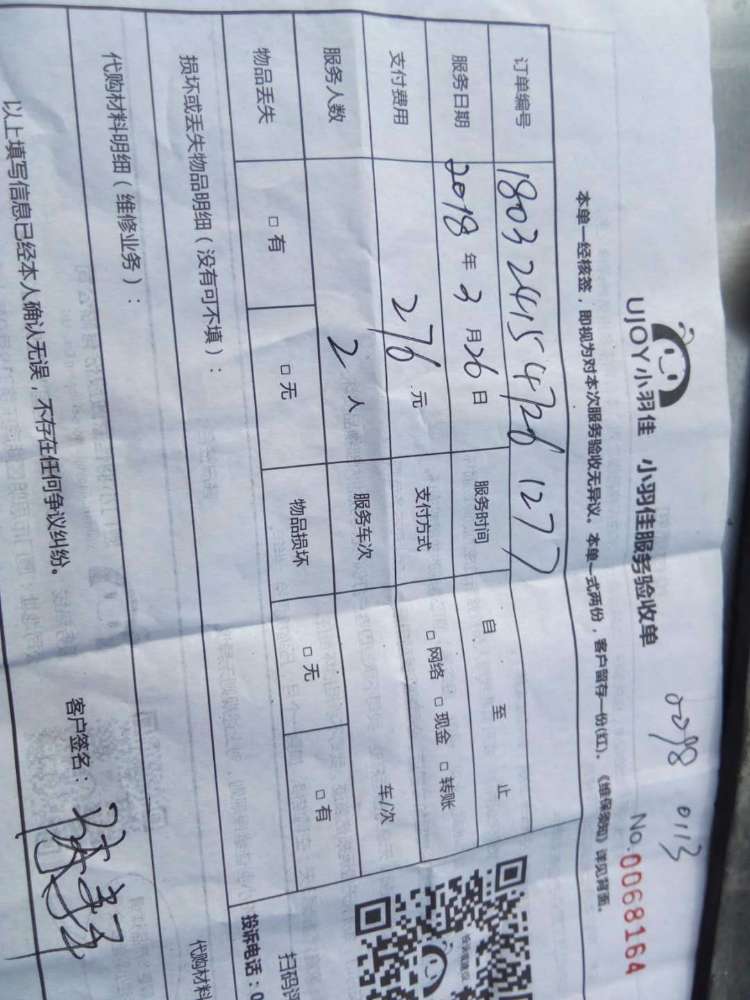 0298 0113
UJOY小羽佳 小羽佳服务验收单 No.0068164
本单一经核签，即视为对本次服务验收无异议。本单一式两份，客户留存一份(红)。《维保须知》详见背面。
订单编号 180324154726 1277
服务日期 2018年3月26日 服务时间 自 至 止
支付费用 276元 支付方式 □网络 □现金 □转账
服务人数 2人 服务车次 车/次
物品丢失 □有 □无 物品损坏 □无 □有
损坏或丢失物品明细（没有可不填）：
代购材料明细（维修业务）：
以上填写信息已经本人确认无误，不存在任何争议纠纷。
客户签名：
扫码
投诉电话：0
代购材料